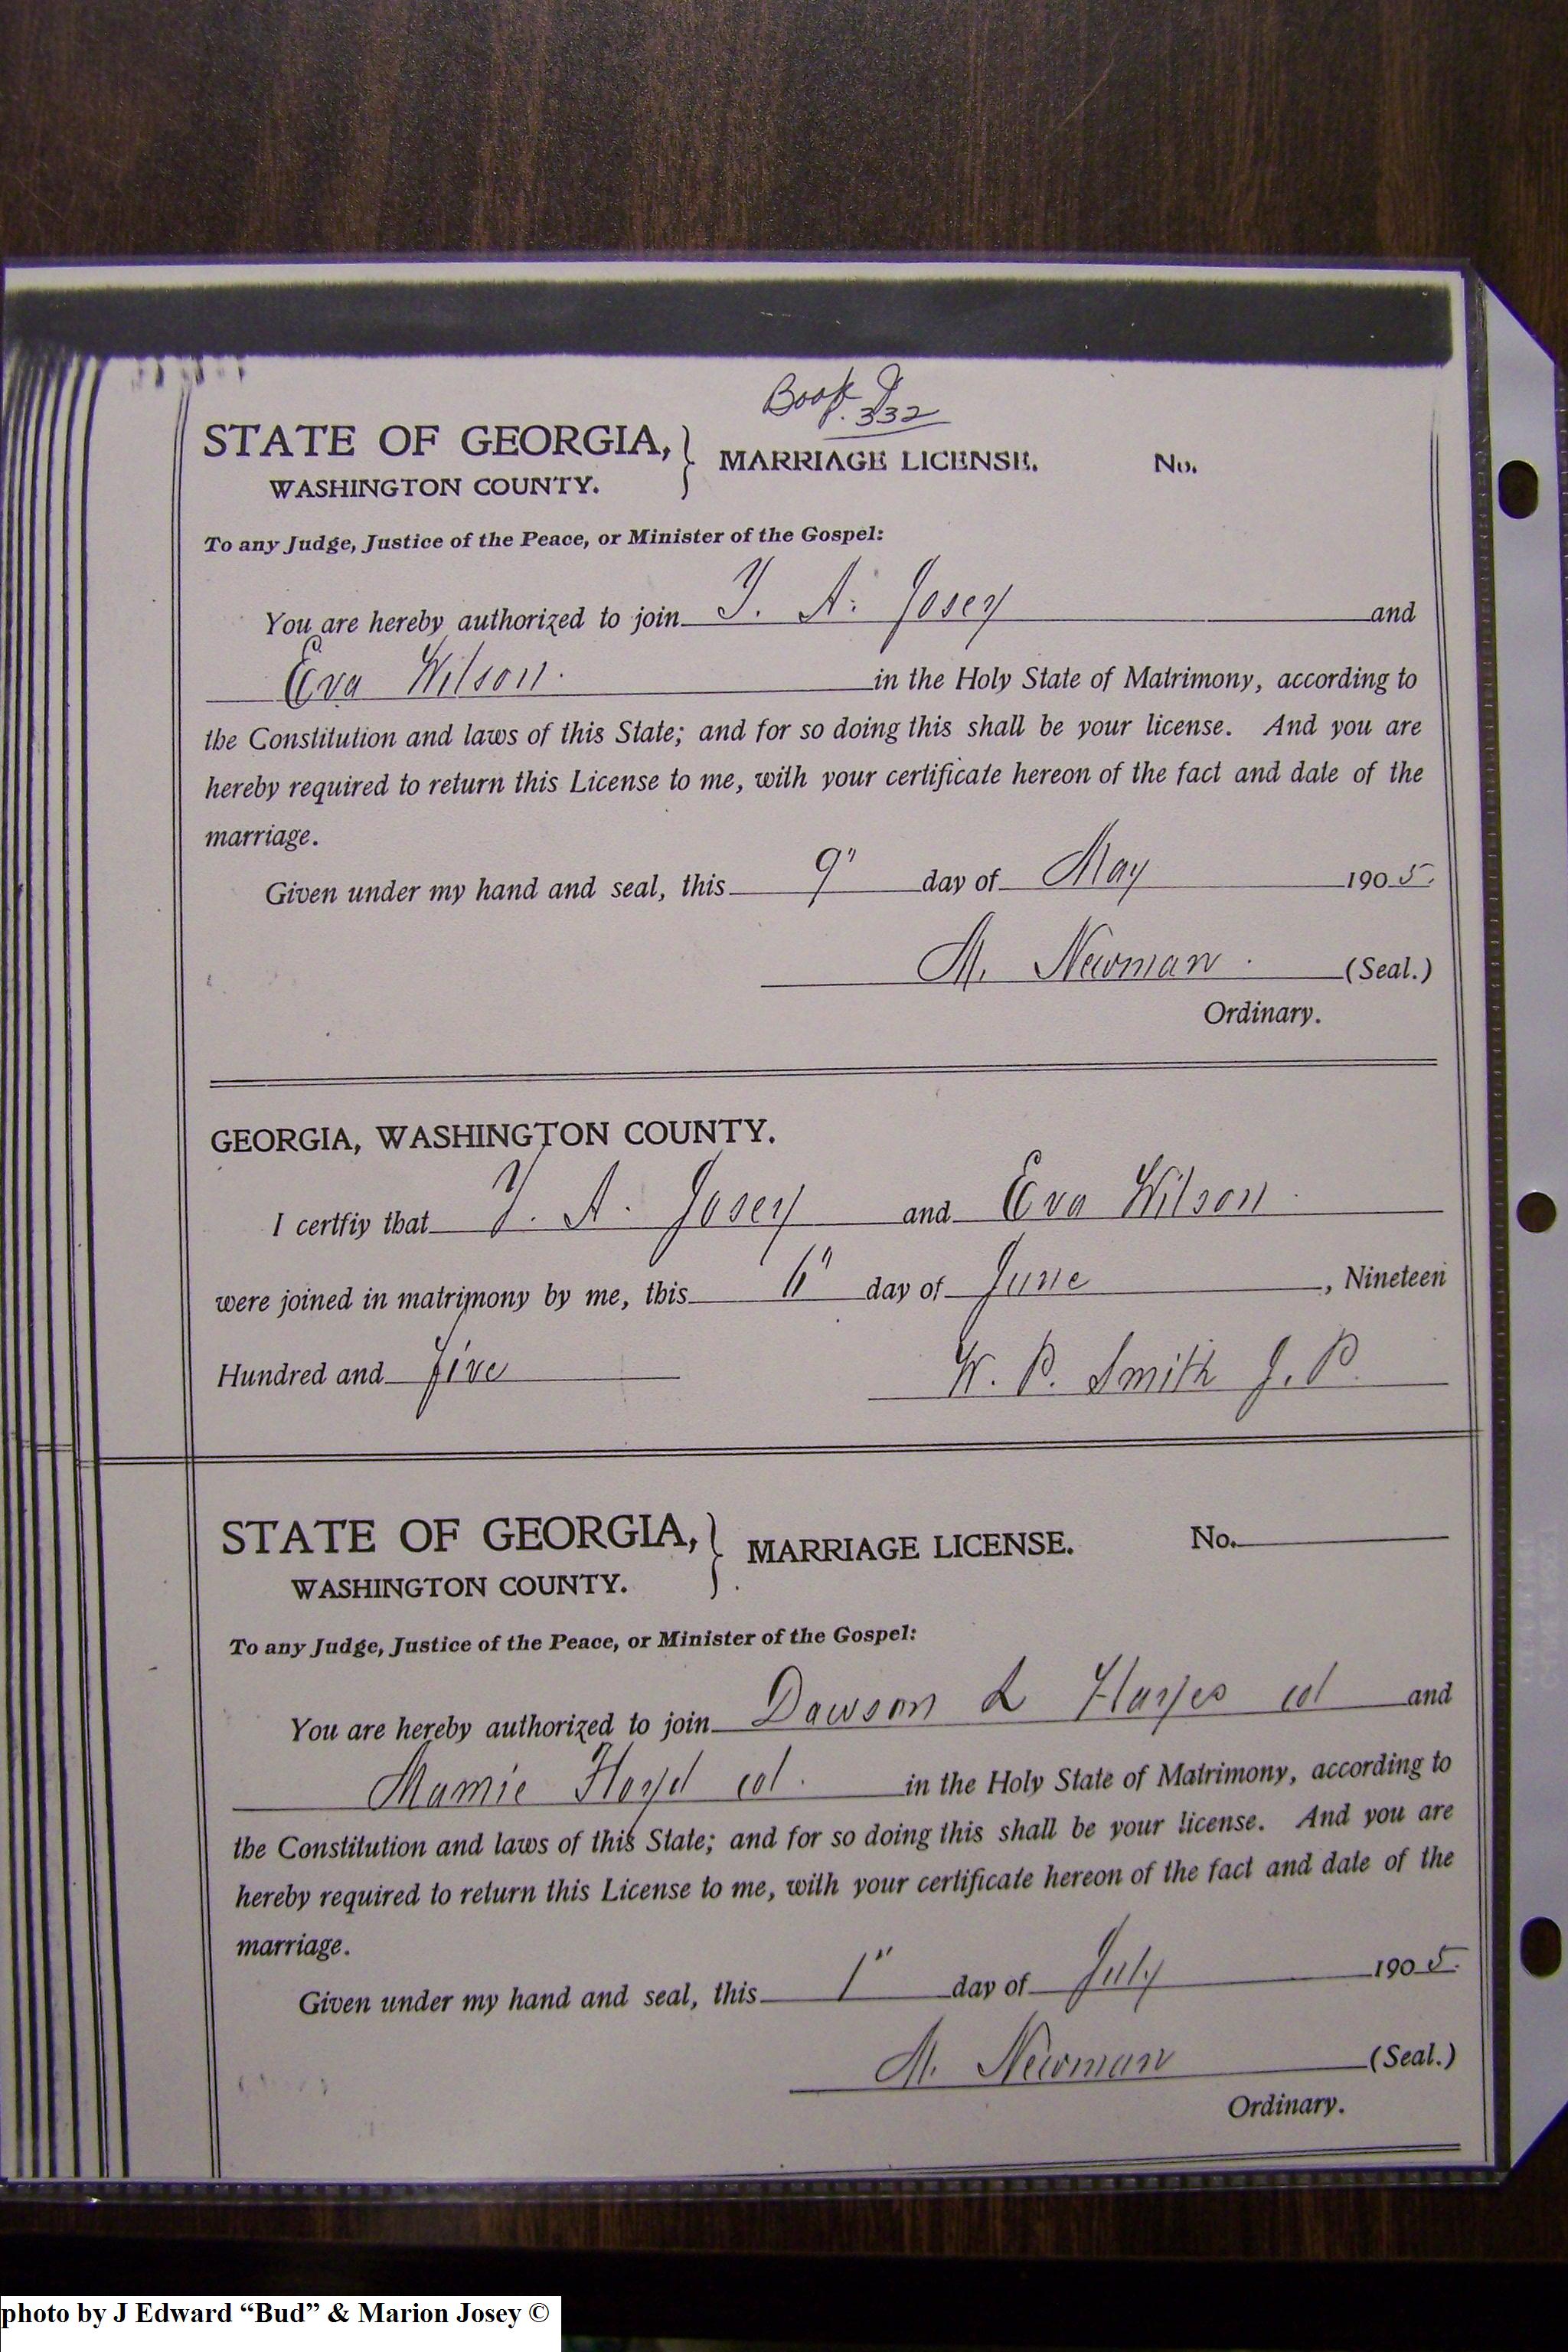 Book J
P. 332
STATE OF GEORGIA, } MARRIAGE LICENSE. No.
WASHINGTON COUNTY.
To any Judge, Justice of the Peace, or Minister of the Gospel:
You are hereby authorized to join A. Josey and
Eva Wilson. in the Holy State of Matrimony, according to
the Constitution and laws of this State; and for so doing this shall be your license. And you are
hereby required to return this License to me, with your certificate hereon of the fact and date of the
marriage.
Given under my hand and seal, this 9" day of May 1905.
M. Newman. (Seal.)
Ordinary.
GEORGIA, WASHINGTON COUNTY.
I certfiy that A. Josey and Eva Wilson.
were joined in matrimony by me, this day of June, Nineteen
Hundred and five W. P. Smith J. P.
STATE OF GEORGIA, } MARRIAGE LICENSE. No.
WASHINGTON COUNTY.
To any Judge, Justice of the Peace, or Minister of the Gospel:
You are hereby authorized to join Dawson L Hayes col and
Mamie Floyd col. in the Holy State of Matrimony, according to
the Constitution and laws of this State; and for so doing this shall be your license. And you are
hereby required to return this License to me, with your certificate hereon of the fact and date of the
marriage.
Given under my hand and seal, this 1" day of July 1905.
M. Newman (Seal.)
Ordinary.
photo by J Edward “Bud” & Marion Josey ©